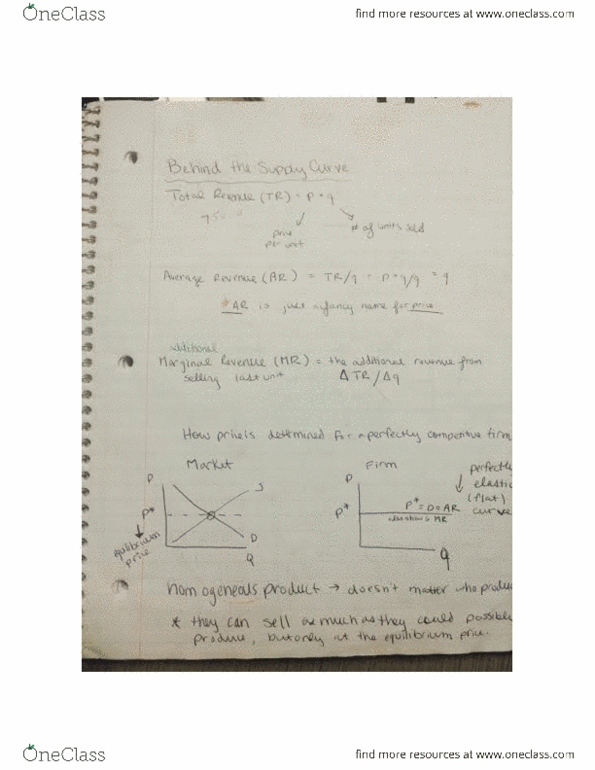 OneClass
find more resources at www.oneclass.com
Behind the Supply Curve
Total Revenue (TR) = P * q
price
per unit
# of units sold
Average Revenue (AR) = TR/q = P * q/q = q
* AR is just a fancy name for price
additional
Marginal Revenue (MR) = the additional revenue from
selling last unit Δ TR/Δq
How price is determined for a perfectly competitive firm
Market
Firm
perfectly
elastic
(flat)
curve
P
S
P*
D
Q
equilibrium
price
P
P*
P* = D = AR
also shows MR
q
homogeneous product → doesn't matter who produ
* they can sell as much as they could possible
produce, but only at the equilibrium price.
OneClass
find more resources at www.oneclass.com